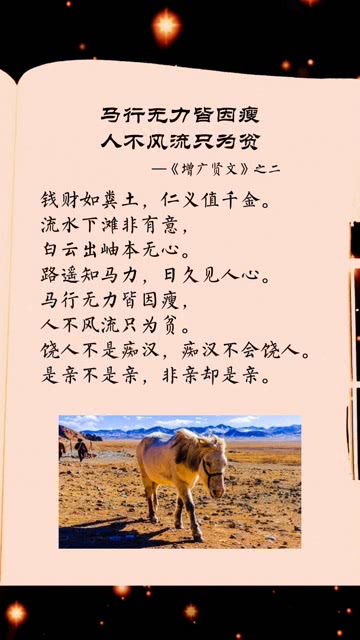 马行无力皆因瘦
人不风流只为贫
—《增广贤文》之二
钱财如粪土，仁义值千金。
流水下滩非有意，
白云出岫本无心。
路遥知马力，日久见人心。
马行无力皆因瘦，
人不风流只为贫。
饶人不是痴汉，痴汉不会饶人。
是亲不是亲，非亲却是亲。